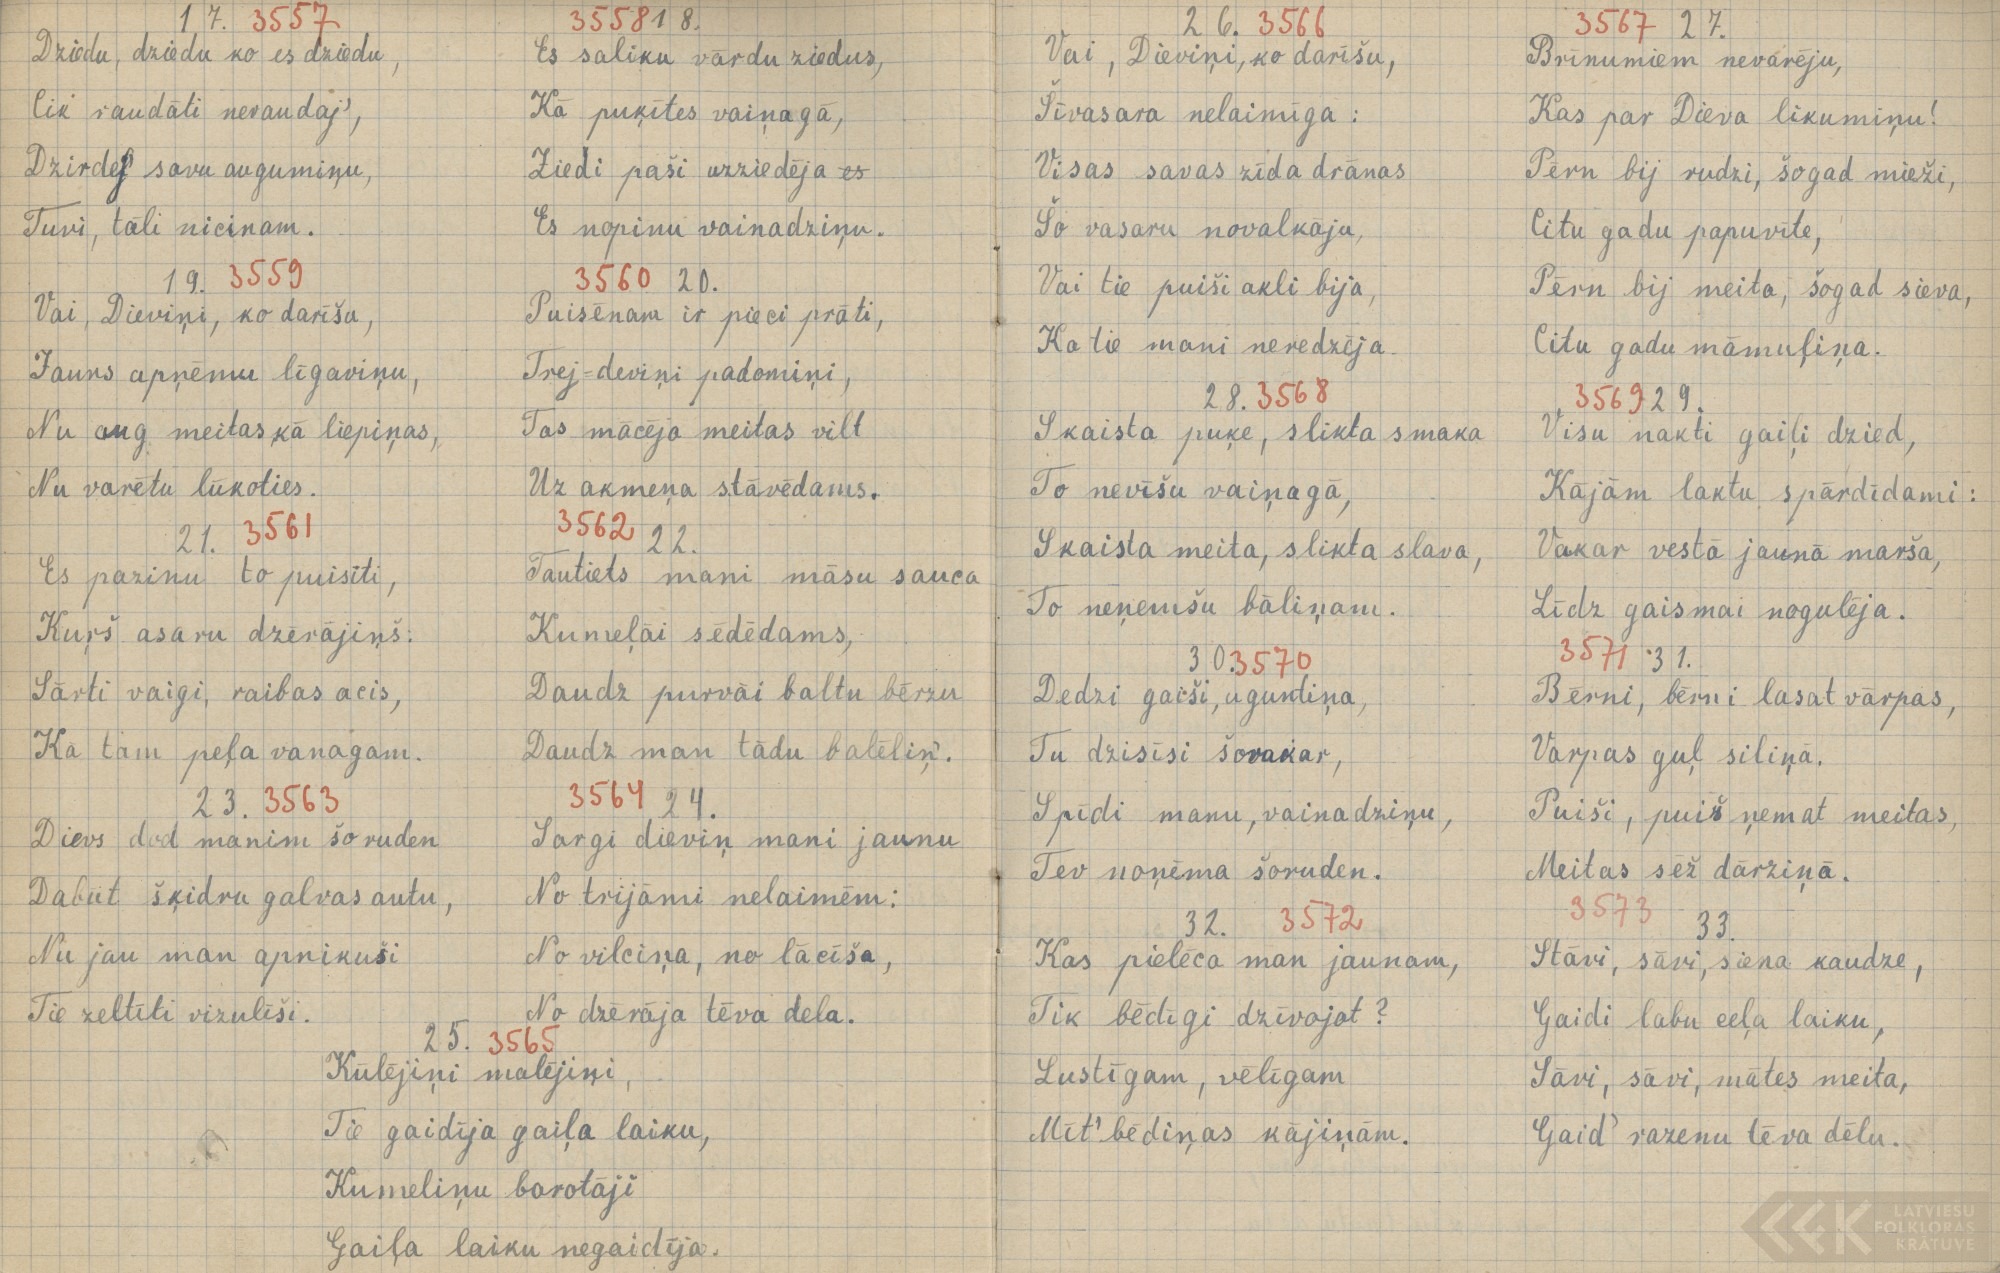 17. 3557
Dziedu, dziedu ko es dziedu,
Cik raudāti neraudāj',
Dzirdej savu augumiņu,
Tuvi, tāli nicinam.
3558 18.
Es saliku vārdu ziedus,
Kā puķītes vaiņagā,
Ziedi paši uzziedēja es
Es nopinu vainadziņu.
19. 3559
Vai, Dieviņi, ko darīšu,
Jauns apņēmu līgaviņu,
Nu aug meitas kā liepiņas,
Nu varētu lūkoties.
3560 20.
Puisēnam ir pieci prāti,
Trej-deviņi padomiņi,
Tas mācēja meitas vilt
Uz akmeņa stāvēdams.
21. 3561
Es pazinu to puisīti,
Kuŗš asaru dzērājiņš:
Sārti vaigi, raibas acis,
Kā tam peļa vanagam.
3562 22.
Tautiets mani māsu sauca
Kumeļāi sēdēdams,
Daudz purvāi baltu bērzu
Daudz man tādu balēliņ'.
23. 3563
Dievs dod manim šoruden
Dabūt šķidru galvas autu,
Nu jau man apnikuši
Tie zeltīti vizulīši.
3564 24.
Sargi dieviņ mani jaunu
No trijāmi nelaimēm:
No vilciņa, no lācīša,
No dzērāja tēva dela.
25. 3565
Kūlējiņi malējiņi,
Tie gaidīja gaiļa laiku,
Kumeliņu barotāji
Gaiļa laiku negaidīja.
26. 3566
Vai, Dieviņi, ko darīšu,
Šīvasara nelaimīga:
Visas savas zīda drānas
Šo vasaru novalkāju,
Vai tie puiši akli bija,
Ka tie mani neredzēja.
3567 27.
Brīnumiem nevarēju,
Kas par Dieva likumiņu!
Pērn bij rudzi, šogad mieži,
Citu gadu papuvīte,
Pērn bij meita, šogad sieva,
Citu gadu māmuļiņa.
28. 3568
Skaista puķe, slikta smaka
To nevīšu vaiņagā,
Skaista meita, slikta slava,
To neņemšu bāliņam.
3569 29.
Visu nakti gaiļi dzied,
Kājām laktu spārdīdami:
Vakar vestā jaunā marša,
Līdz gaismai nogulēja.
30. 3570
Dedzi gaiši, uguntiņa,
Tu dzisīsi šovakar,
Spīdi manu, vainadziņu,
Tev noņēma šoruden.
3571 31.
Bērni, bērni lasat vārpas,
Varpas guļ siliņā.
Puiši, puiš ņemat meitas,
Meitas sēž dārziņā.
32. 3572
Kas pielēca man jaunam,
Tik bēdīgi dzīvojot?
Lustīgam, vēlīgam
Mīt' bēdiņas kājiņām.
3573 33.
Stāvi, sāvi, siena kaudze,
Gaidi labu ceļa laiku,
Sāvi, sāvi, mātes meita,
Gaid' razenu tēva dēlu.
LATVIEŠU
FOLKLORAS
KRĀTUVE